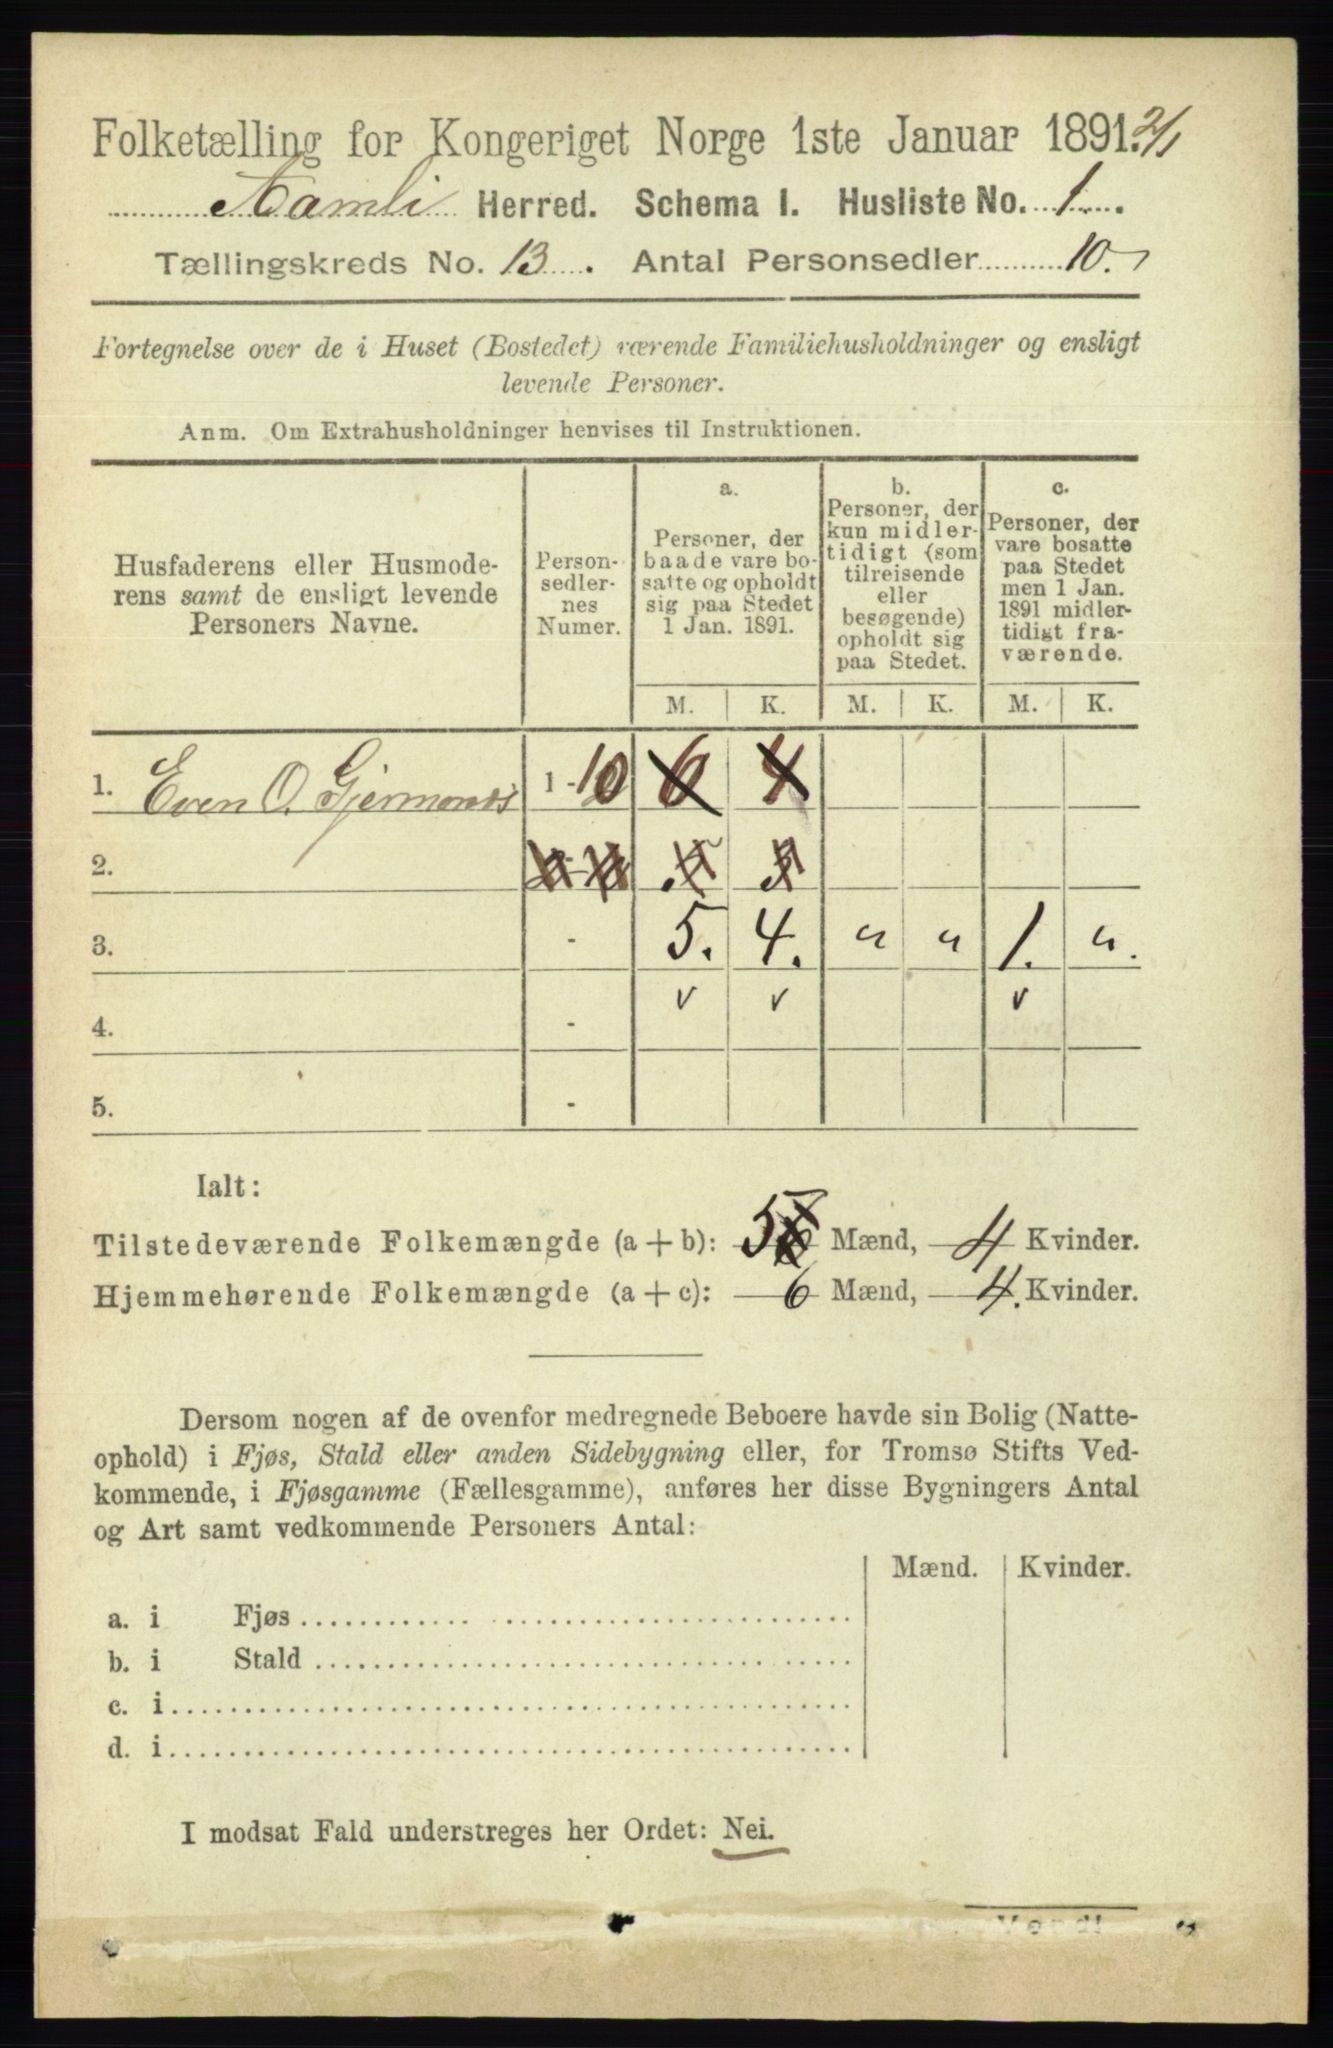 Folketælling for Kongeriget Norge 1ste Januar 1891. 2/1
Aamli Herred. Schema I. Husliste No. 1.
Tællingskreds No. 13. Antal Personsedler 10.
Fortegnelse over de i Huset (Bostedet) værende Familiehusholdninger og ensligt
levende Personer.
Anm. Om Extrahusholdninger henvises til Instruktionen.
Husfaderens eller Husmode-
rens samt de ensligt levende
Personers Navne.
Person-
sedler-
nes
Numer.
a.
Personer, der
baade vare bo-
satte og opholdt
sig paa Stedet
1 Jan. 1891.
b.
Personer, der
kun midler-
tidigt (som
tilreisende
eller
besøgende)
opholdt sig
paa Stedet.
c.
Personer, der
vare bosatte
paa Stedet
men 1 Jan.
1891 midler-
tidigt fra-
værende.
M. K. M. K. M. K.
1. Even O. Gjermonds 1 - 10 6 4
2.
3. - 5. 4. " " 1. ".
v v v
4. -
5. -
Ialt:
Tilstedeværende Folkemængde (a + b): 5 Mænd, 4 Kvinder.
Hjemmehørende Folkemængde (a + c): 6 Mænd, 4. Kvinder.
Dersom nogen af de ovenfor medregnede Beboere havde sin Bolig (Natte-
ophold) i Fjøs, Stald eller anden Sidebygning eller, for Tromsø Stifts Ved-
kommende, i Fjøsgamme (Fællesgamme), anføres her disse Bygningers Antal
og Art samt vedkommende Personers Antal:
Mænd. Kvinder.
a. i Fjøs
b. i Stald
c. i
d. i
I modsat Fald understreges her Ordet: Nei.